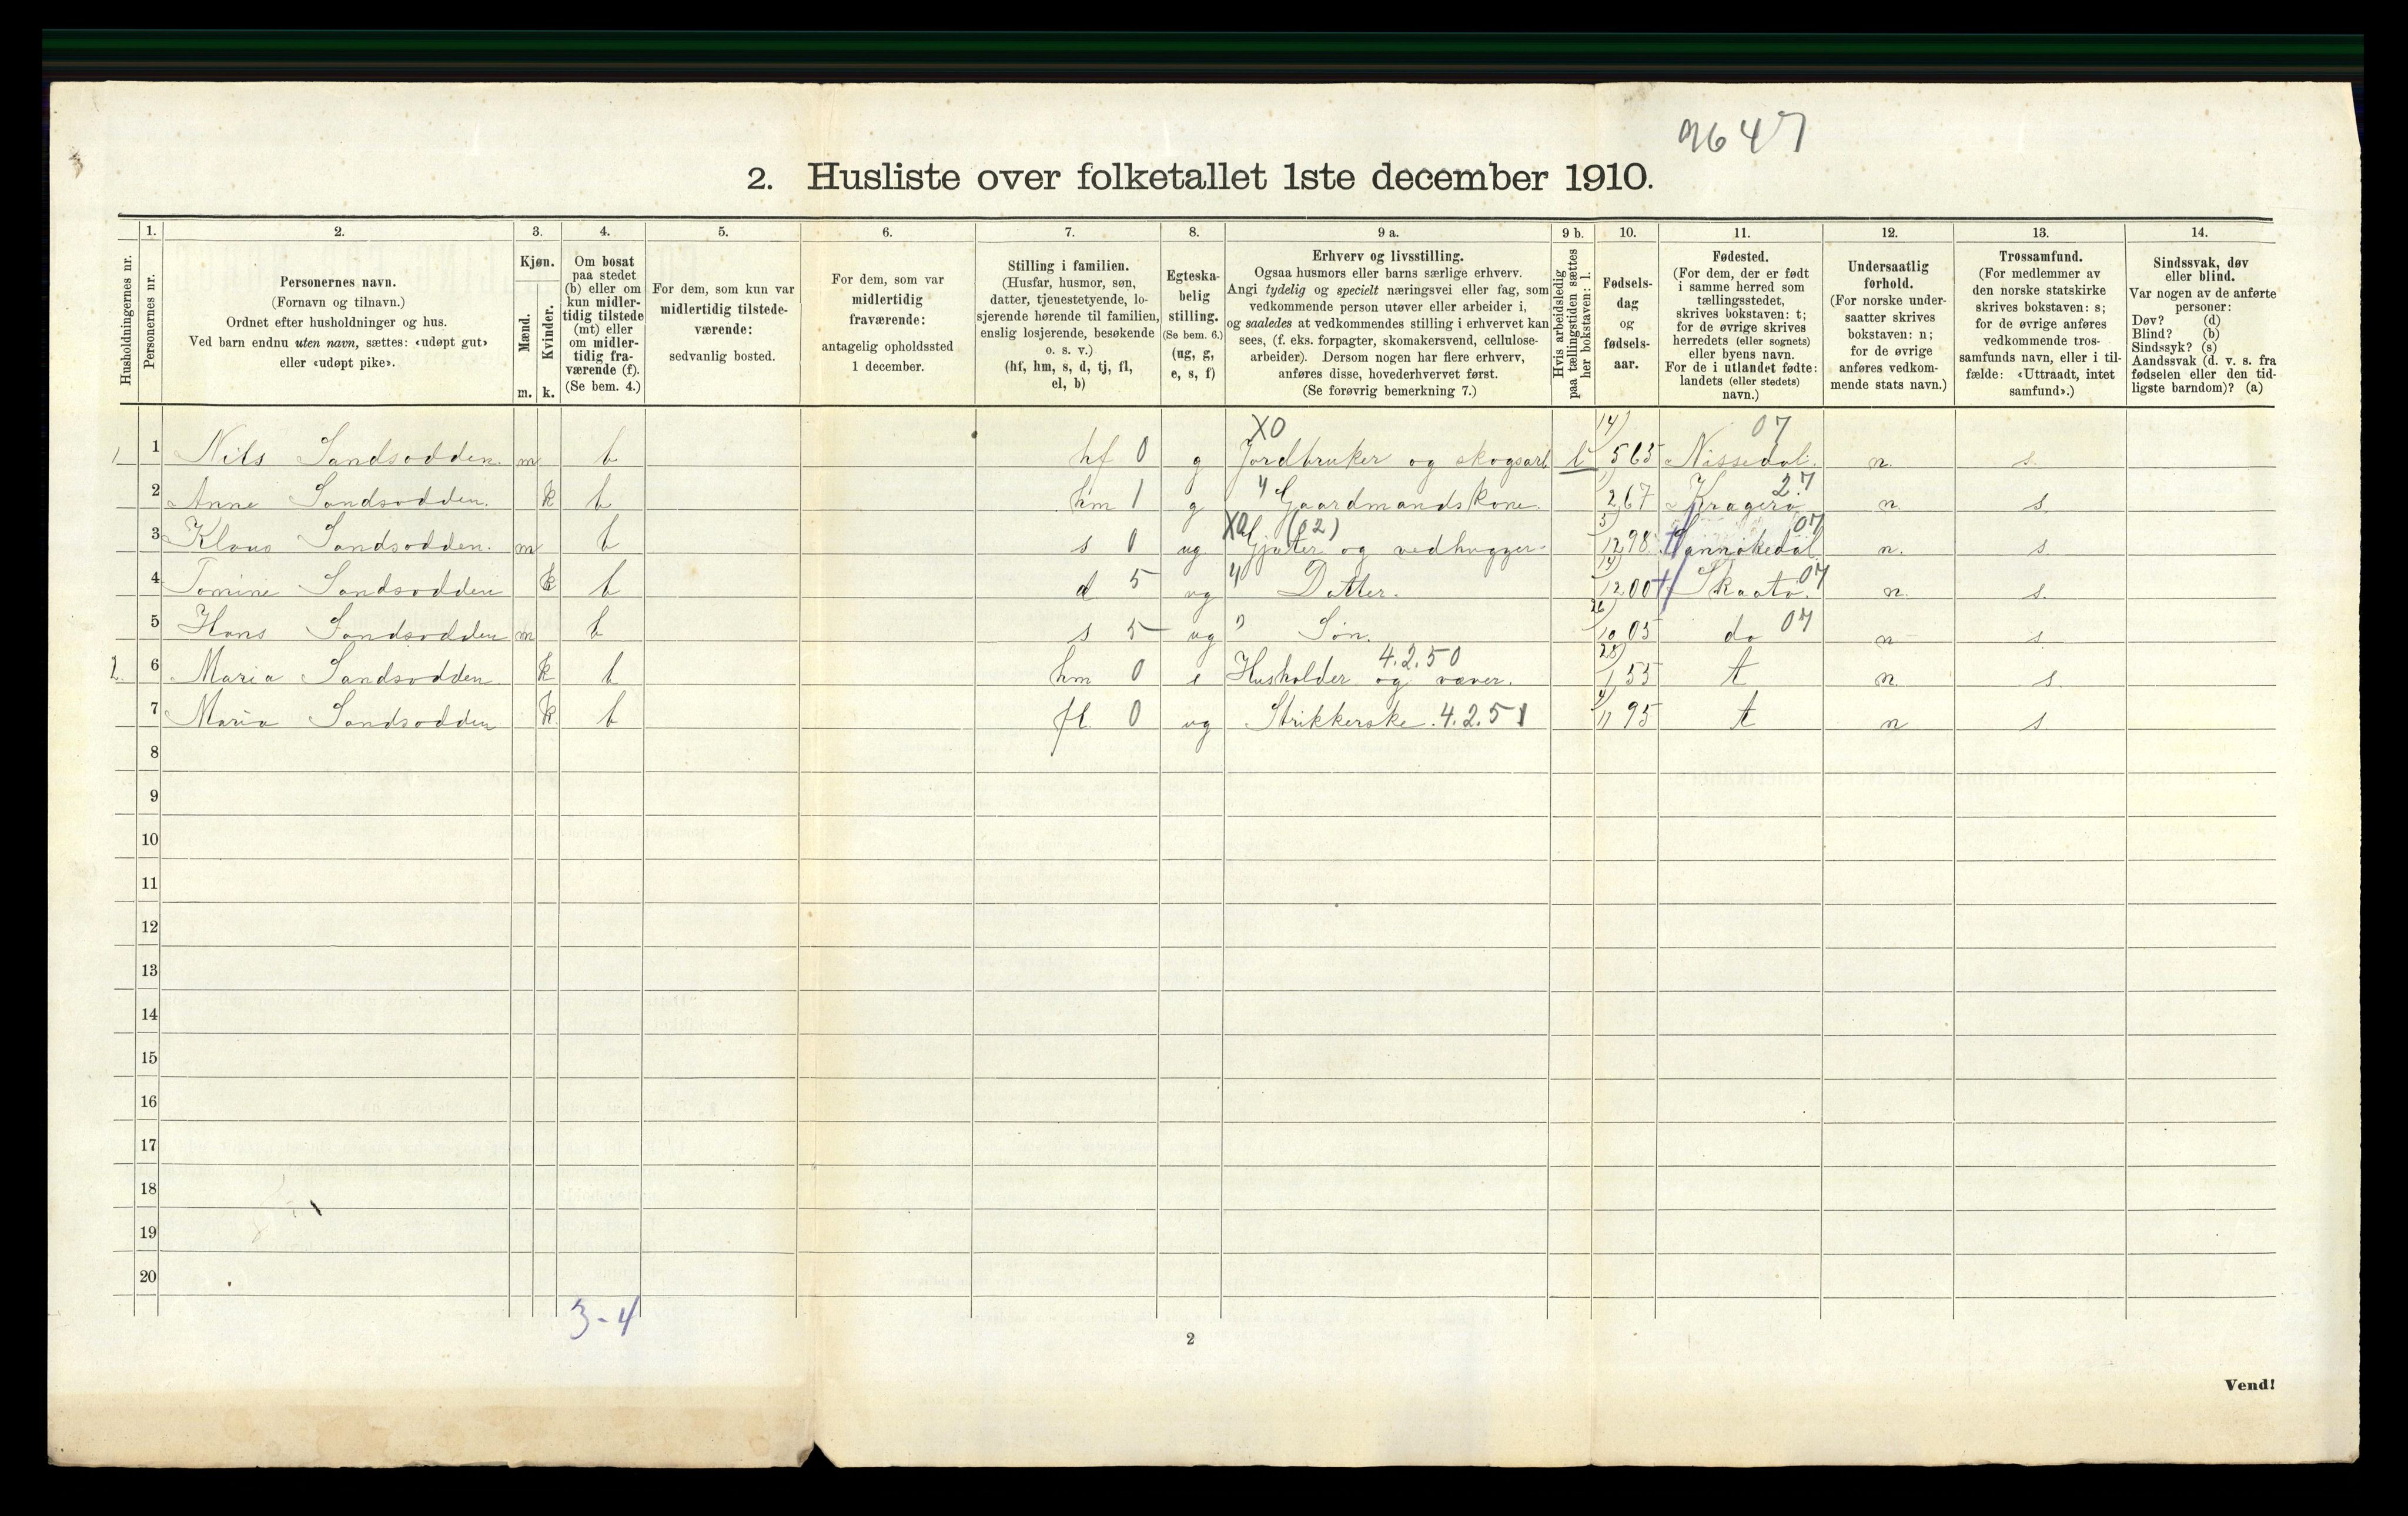 9647
2. Husliste over folketallet 1ste december 1910.
Husholdningernes nr.
1. Personernes nr.
2. Personernes navn.
(Fornavn og tilnavn.)
Ordnet efter husholdninger og hus.
Ved barn endnu uten navn, sættes: «udøpt gut»
eller «udøpt pike».
3. Kjøn.
Mænd. m.
Kvinder. k.
4. Om bosat
paa stedet
(b) eller om
kun midler-
tidig tilstede
(mt) eller
om midler-
tidig fra-
værende (f).
(Se bem. 4.)
5. For dem, som kun var
midlertidig tilstede-
værende:
sedvanlig bosted.
6. For dem, som var
midlertidig
fraværende:
antagelig opholdssted
1 december.
7. Stilling i familien.
(Husfar, husmor, søn,
datter, tjenestetyende, lo-
sjerende hørende til familien,
enslig losjerende, besøkende
o. s. v.)
(hf, hm, s, d, tj, fl,
el, b)
8. Egteska-
belig
stilling.
(Se bem. 6.)
(ug, g,
e, s, f)
9 a. Erhverv og livsstilling.
Ogsaa husmors eller barns særlige erhverv.
Angi tydelig og specielt næringsvei eller fag, som
vedkommende person utøver eller arbeider i,
og saaledes at vedkommendes stilling i erhvervet kan
sees, (f. eks. forpagter, skomakersvend, cellulose-
arbeider). Dersom nogen har flere erhverv,
anføres disse, hovederhvervet først.
(Se forøvrig bemerkning 7.)
9 b. Hvis arbeidsledig
paa tællingstiden sættes
her bokstaven: l.
10. Fødsels-
dag
og
fødsels-
aar.
11. Fødested.
(For dem, der er født
i samme herred som
tællingsstedet,
skrives bokstaven: t;
for de øvrige skrives
herredets (eller sognets)
eller byens navn.
For de i utlandet fødte:
landets (eller stedets)
navn.)
12. Undersaatlig
forhold.
(For norske under-
saatter skrives
bokstaven: n;
for de øvrige
anføres vedkom-
mende stats navn.)
13. Trossamfund.
(For medlemmer av
den norske statskirke
skrives bokstaven: s;
for de øvrige anføres
vedkommende tros-
samfunds navn, eller i til-
fælde: «Uttraadt, intet
samfund».)
14. Sindssvak, døv
eller blind.
Var nogen av de anførte
personer:
Døv? (d)
Blind? (b)
Sindssyk? (s)
Aandssvak (d. v. s. fra
fødselen eller den tid-
ligste barndom)? (a)
XO 14) 07
1 1 Nils Sandsodden. m b hf 0 g Jordbruker og skogsarb l 5 65 Nissedal. n. s.
2 Anne Sandsodden. k b hm 1 g " Gaardmandskone. 2 67 Kragerø 27 n. s.
3 Klaus Sandsodden. m b s 0 ug X0 (02) Gjæter og vedhugger. 5) 12 98 Sannøkedal. 07 n. s.
4 Tomine Sandsodden k b d 5 ug " Datter. 14) 12 00 Skaatø. 07 n. s.
5 Hans Sandsodden m b s 5 ug " Søn. 26) 10 05 do 07 n s
2. 6 Maria Sandsodden k b hm 0 e Husholder og væver. 4.2.50 28) 1 55 t n. s.
7 Maria Sandsodden k b fl. 0 ug Strikkerske. 4.2.51 11 95 t n s
8
9
10
11
12
13
14
15
16
17
18
19
20
3-4
2
Vend!